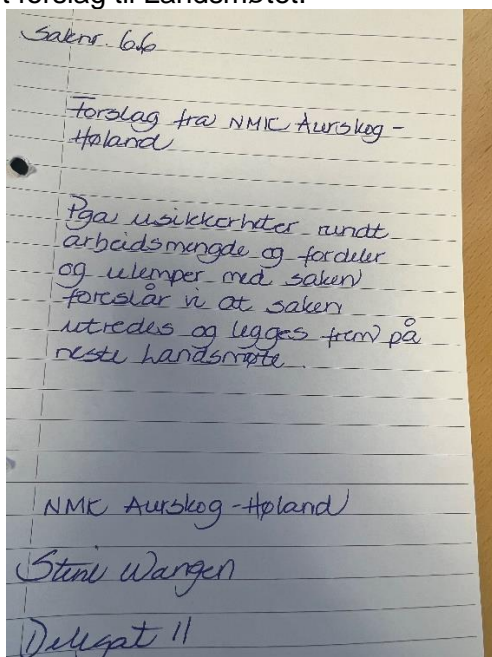 t forslag til Landsmøtet.
Saknr. 6.6
Forslag fra NMK Aurskog-
Høland
Pga usikkerheter rundt
arbeidsmengde og fordeler
og ulemper med saken
foreslår vi at saken
utredes og legges frem på
neste Landsmøte.
NMK Aurskog-Høland
Stine Wangen
Delegat 11